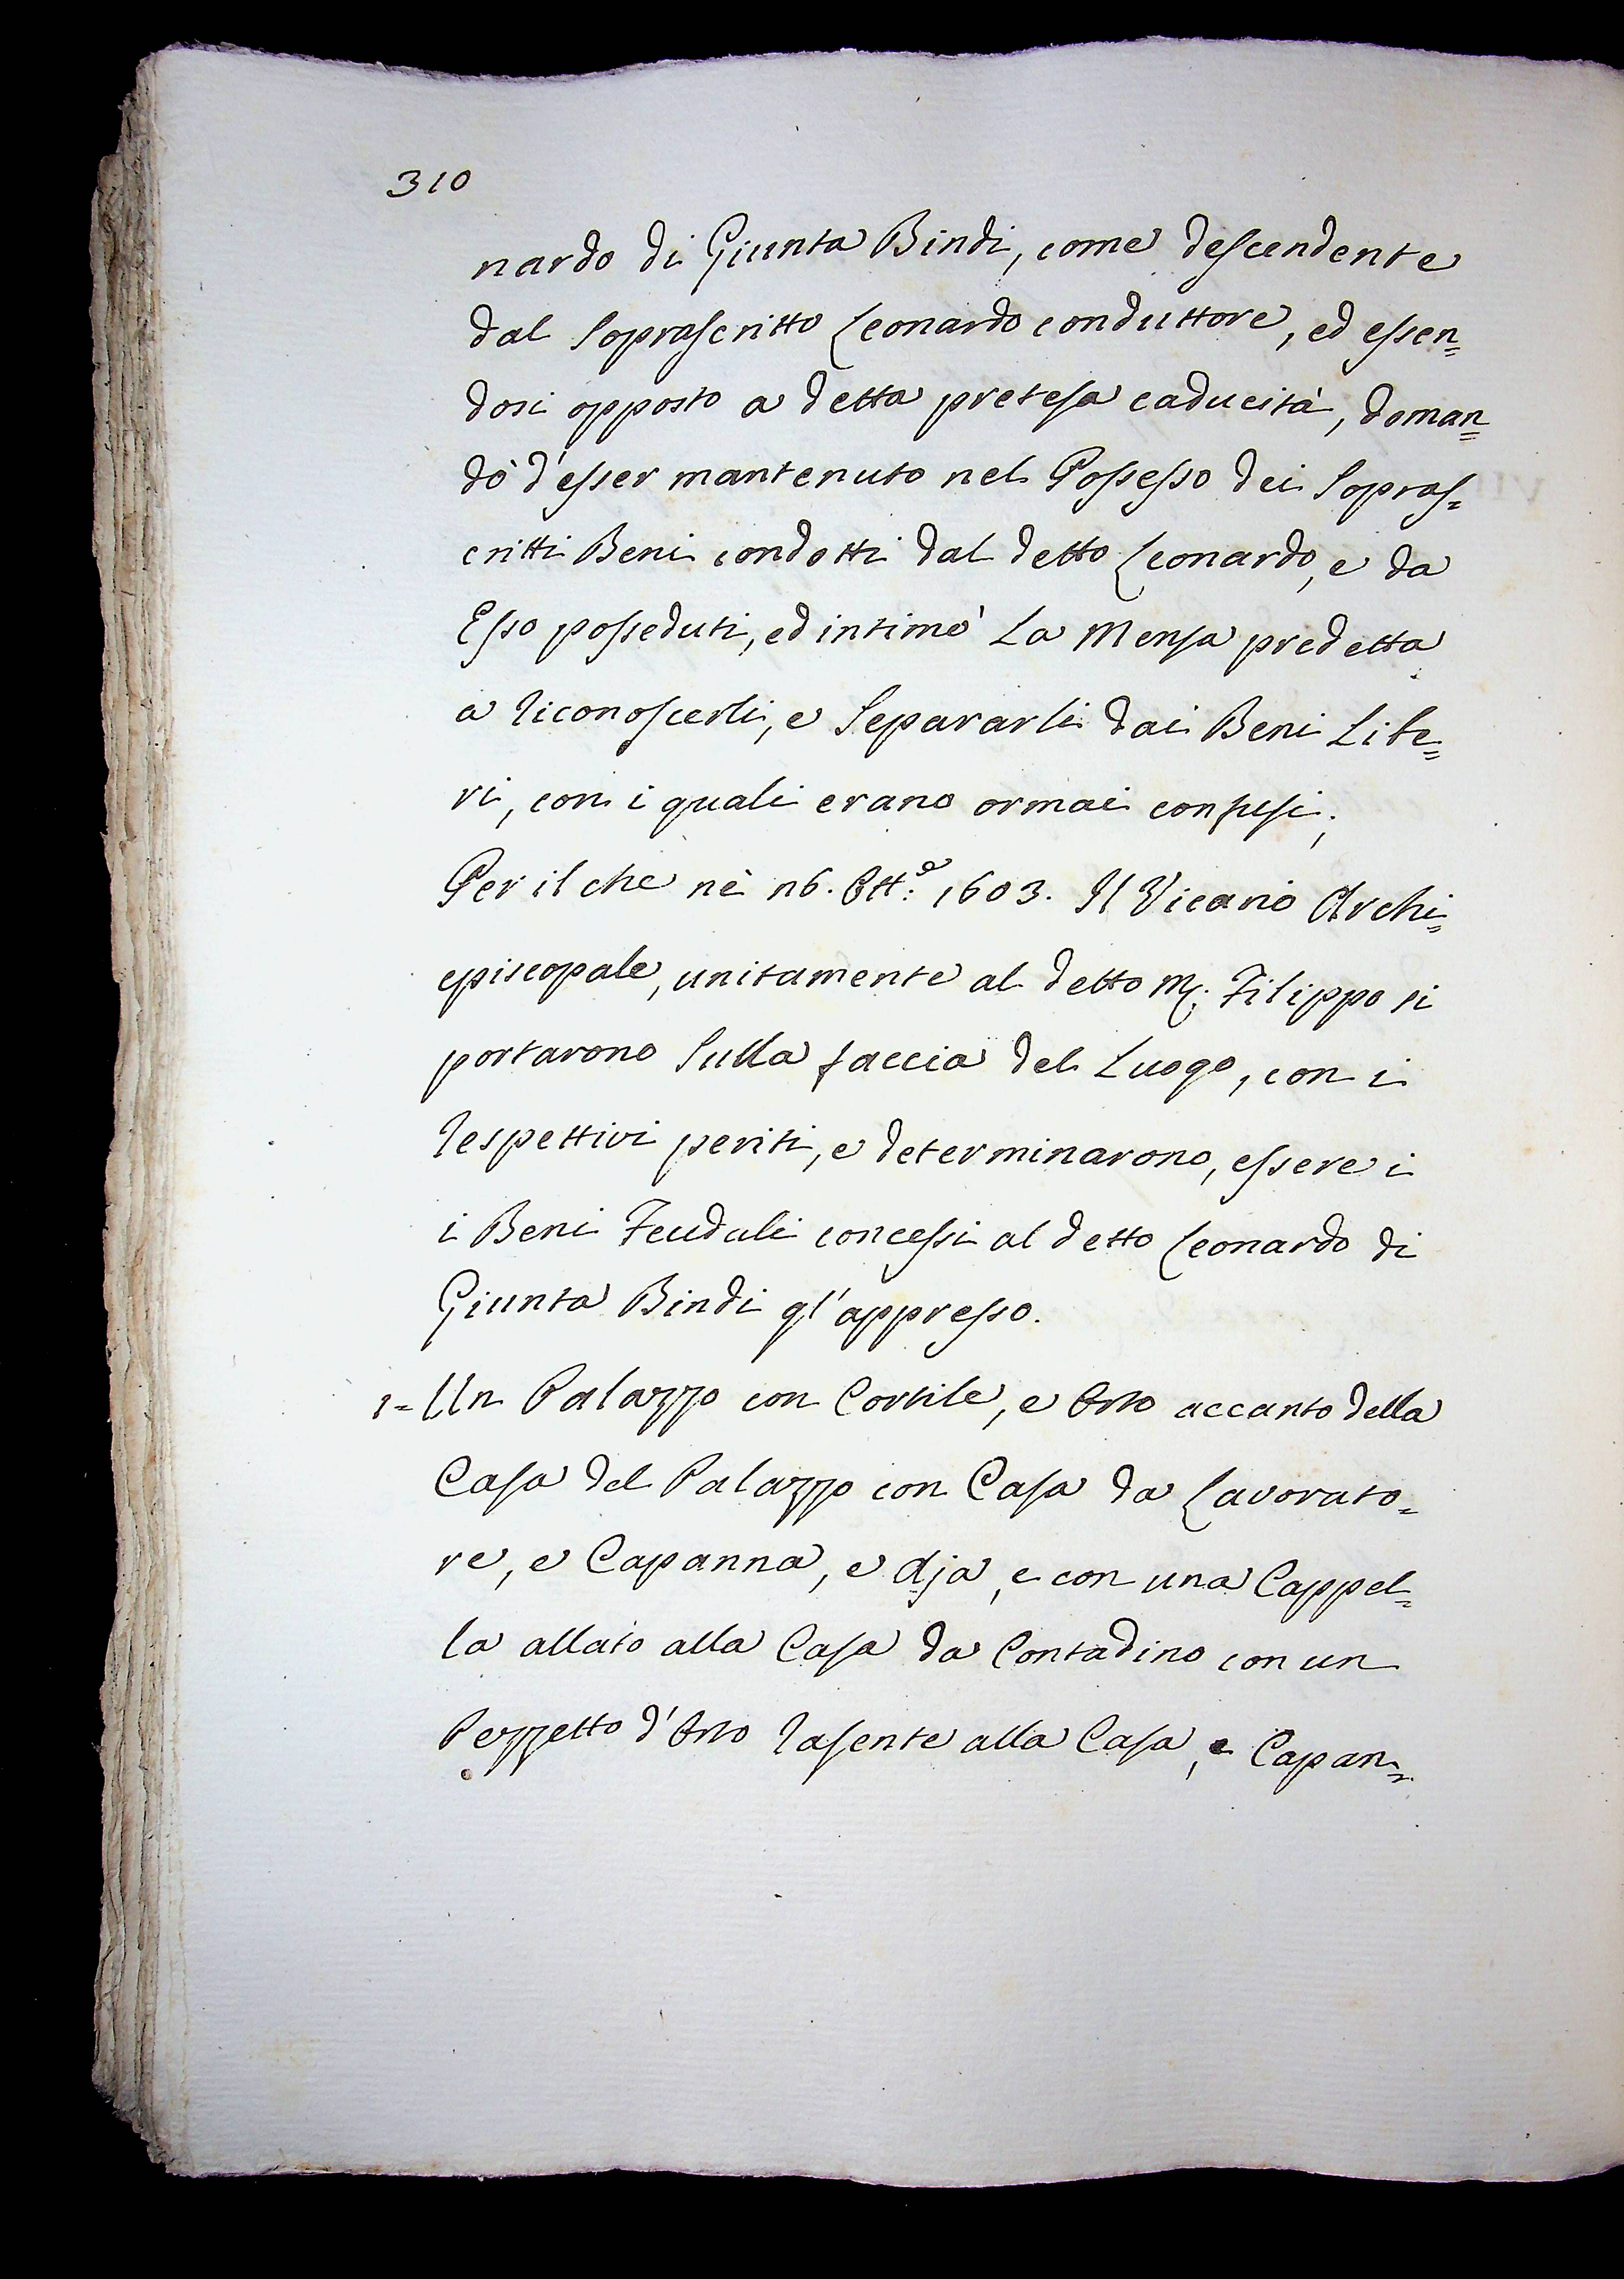 310
nardo di Giunta Bindi, come descendente
dal Soprascritto Leonardo conduttore, ed essen=
dosi opposto a detta pretesa caducità, doman=
dò d'esser mantenuto nel Possesso dei Sopras=
critti Beni condotti dal detto Leonardo, e da
Esso posseduti, ed intimò La Mensa predetta
a riconoscerli, e Separarli dai Beni Libe=
ri, con i quali erano ormai confusi;
Per il che nè 16. Ott.e 1603. Il Vicario Archi=
episcopale, unitamente al detto M. Filippo si
portarono Sulla faccia del Luogo, con i
respettivi periti, e determinarono, essere i
i Beni Feudali concessi al detto Leonardo di
Giunta Bindi gl'appresso.
1= Un Palazzo con Cortile, e Orto accanto della
Casa del Palazzo con Casa da Lavorato=
re, e Capanna, e Aja, e con una Cappel=
la allato alla Casa da Contadino con un
Pezzetto d'Orto rasente alla Casa, e Capan=